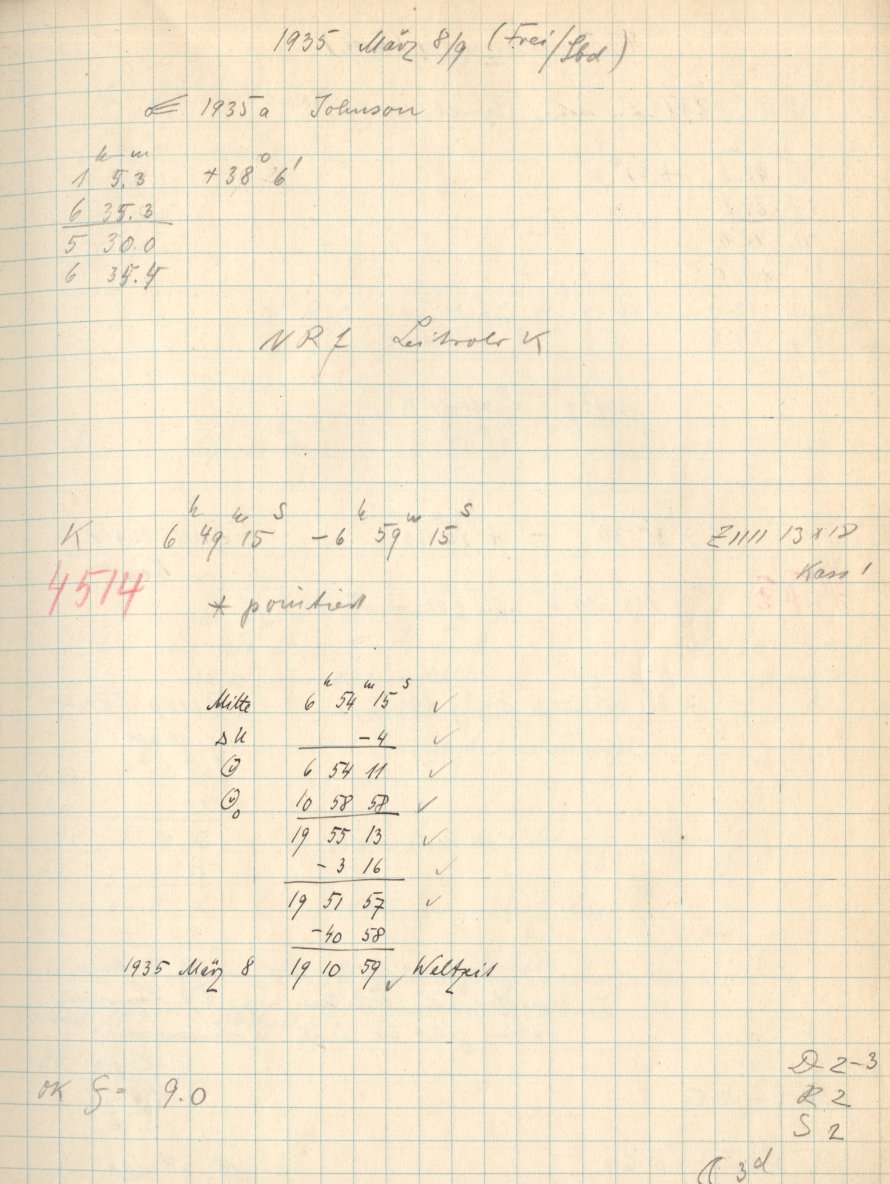 1935 März 8/9 (Frei/Sbd)
☄ 1935 a Johnson
h m
1 5.3 +38° 6'
6 35.3
5 30.0
6 35.4
NRf Leitrohr K
K 6h 49m 15s - 6h 59m 15s 13x18
Kass 1
4514
* pointiert
Mitte 6h 54m 15s ✓
ΔU -4 ✓
Θ 6 54 11 ✓
Θ₀ 10 58 58 ✓
19 55 13 ✓
-3 16 ✓
19 51 57 ✓
-40 58
1935 März 8 19 10 59 ✓ Weltzeit
D 2-3
OK = 9.0
R 2
S 2
☾ 3d